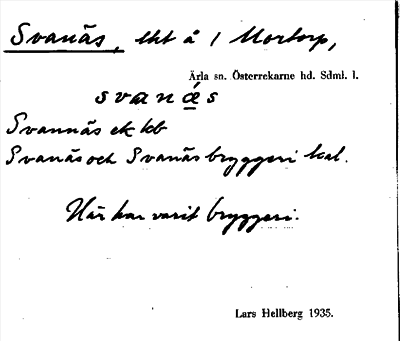 Svanäs, lht å 1 Mortorp,
Ärla sn. Österrekarne hd. Sdml. l.
svanǽs
Svannäs ek kb
Svanäs och Svanäs bryggeri kal.
Här har varit bryggeri.
Lars Hellberg 1935.